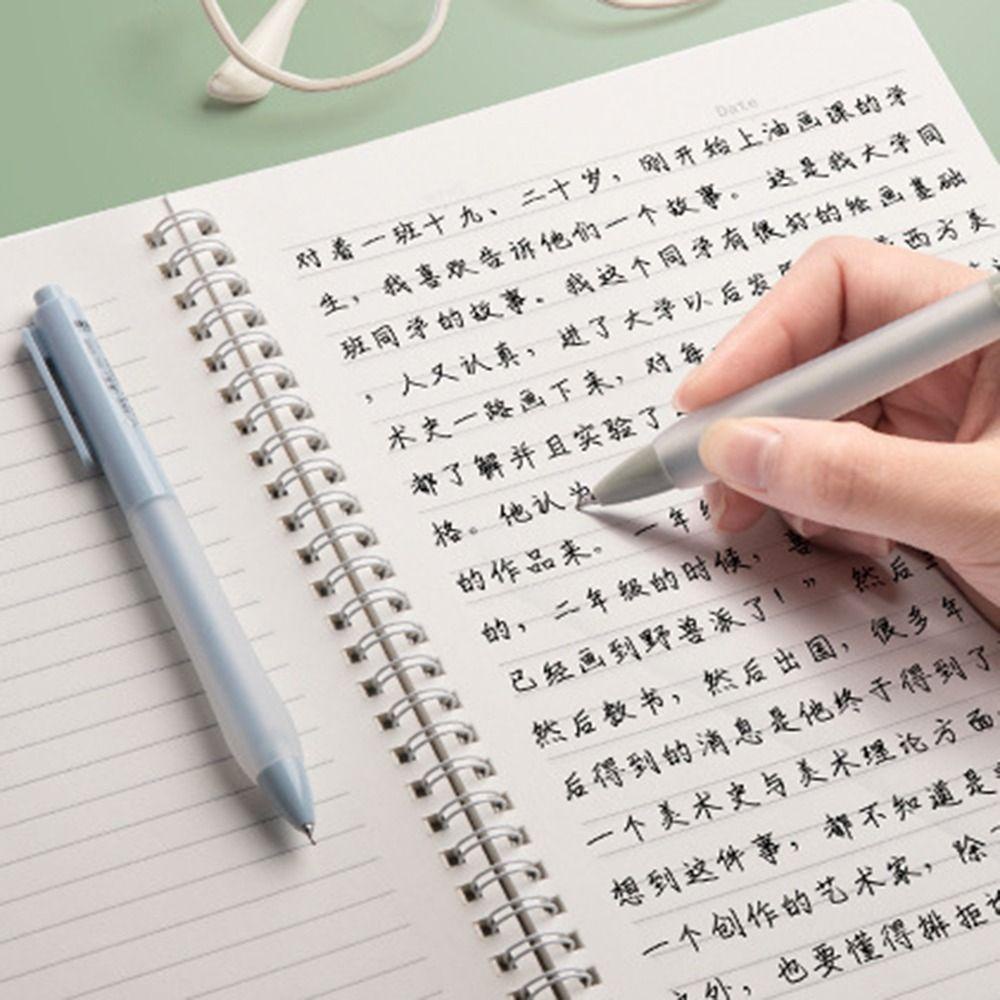 Date
对着一班十九、二十岁，刚开始上油画课的学
生，我喜欢告诉他们一个故事。这是我大学同
班同学的故事。我这个同学有很好的绘画基础
，人又认真，进了大学以后发西方美
术史一路画下来，对每
都了解并且实验了
格。他认为
的作品来。一年级
的，二年级的时候，喜
已经画到野兽派了！”然后
然后教书，然后出国，很多年
后得到的消息是他终于得到了
一个美术史与美术理论方面
想到这件事，都不知道是
一个创作的艺术家，除
之外，也要懂得排拒